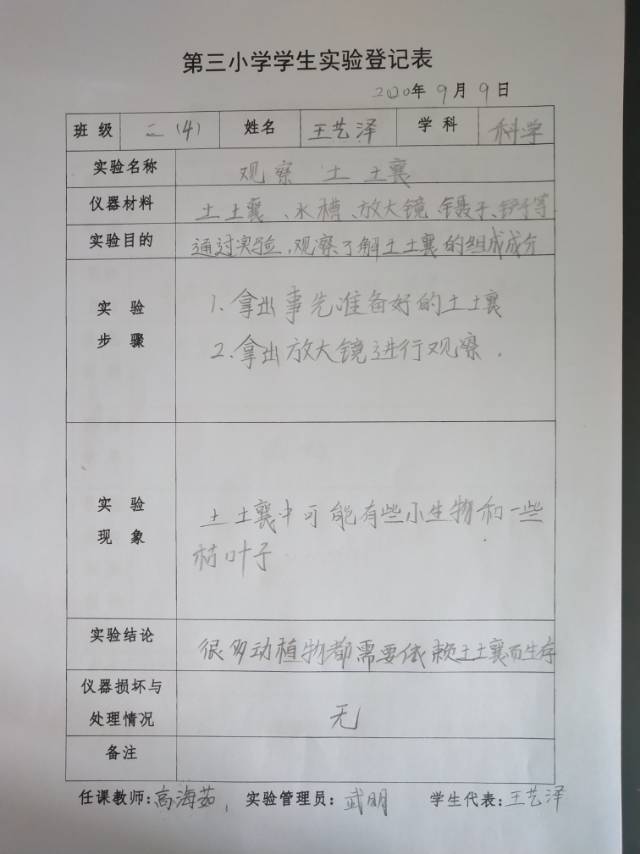 第三小学学生实验登记表
2020年 9月 9日
班 级 二(4) 姓名 王艺泽 学 科 科学
实验名称 观察 土 土襄
仪器材料 土土襄、水槽、放大镜 镊子、铲子等
实验目的 通过实验,观察了解土土襄的组成成分
实 验
步 骤
1.拿出事先准备好的土土襄
2.拿出放大镜进行观察.
实 验
现 象
土土襄中可能有些小生物和一些
枯叶子
实验结论 很多动植物都需要依赖土土襄而生存
仪器损坏与
处理情况 无
备注
任课教师:高海茹, 实验管理员:武明 学生代表:王艺泽